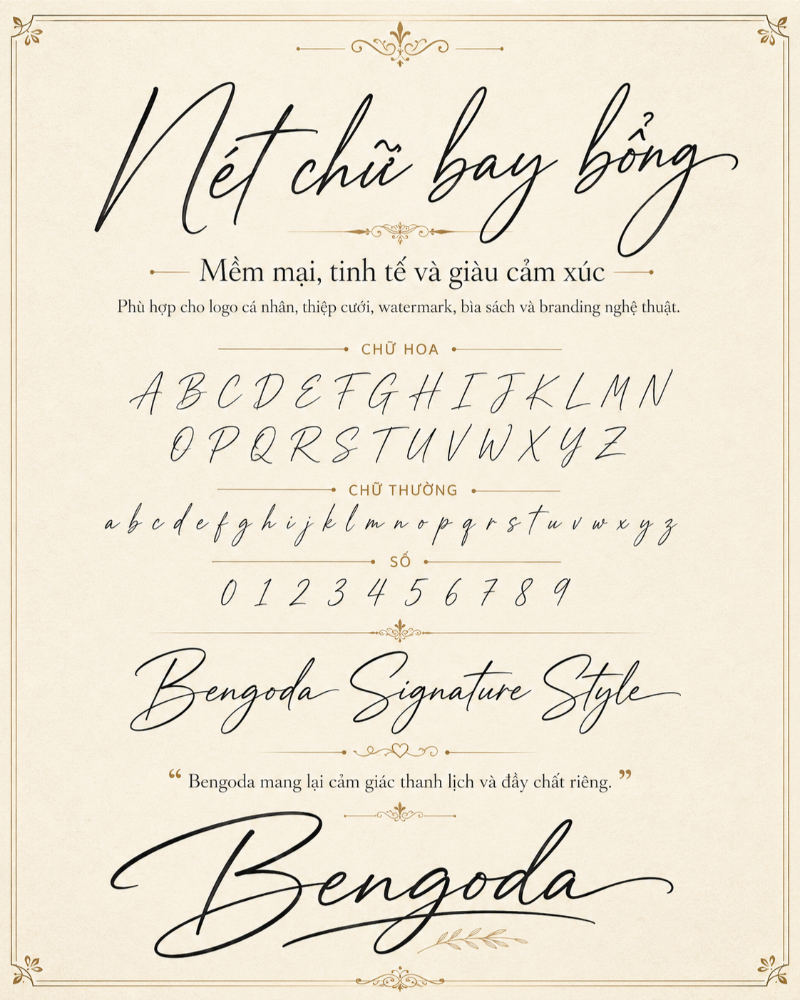 Nét chữ bay bổng
Mềm mại, tinh tế và giàu cảm xúc
Phù hợp cho logo cá nhân, thiệp cưới, watermark, bìa sách và branding nghệ thuật.
CHỮ HOA
A B C D E F G H I J K L M N
O P Q R S T U V W X Y Z
CHỮ THƯỜNG
a b c d e f g h i j k l m n o p q r s t u v w x y z
SỐ
0 1 2 3 4 5 6 7 8 9
Bengoda Signature Style
“ Bengoda mang lại cảm giác thanh lịch và đầy chất riêng. ”
Bengoda